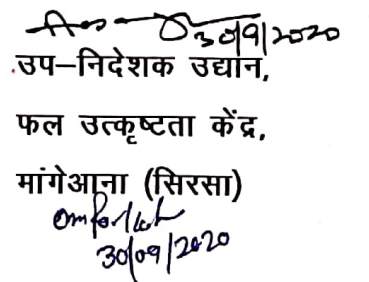 30/9/2020
उप-निदेशक उद्यान,
फल उत्कृष्टता केंद्र,
मांगेआना (सिरसा)
30/09/2020